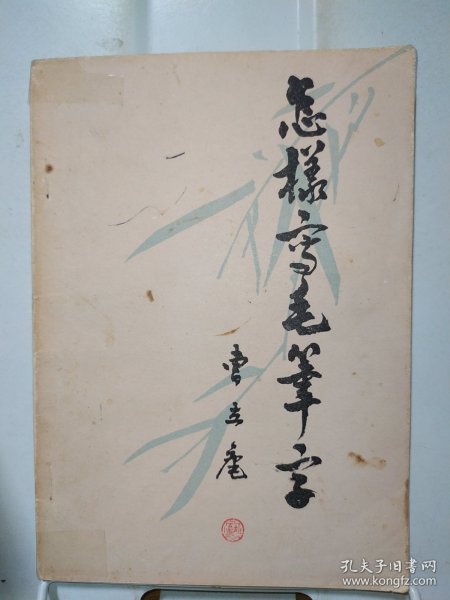 怎樣寫毛筆字
曹立庵
孔夫子旧书网
www.kongfz.com